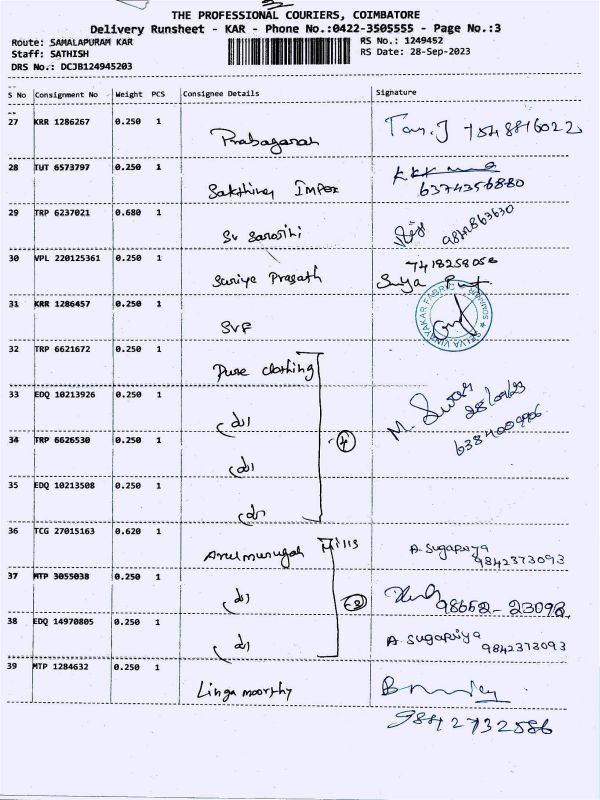 THE PROFESSIONAL COURIERS, COIMBATORE
Delivery Runsheet - KAR - Phone No.:0422-3505555 - Page No.:3
Route: SAMALAPURAM KAR
Staff: SATHISH
DRS No.: DCJB124945203
RS No.: 1249452
RS Date: 28-Sep-2023
S No Consignment No Weight PCS Consignee Details Signature
27 KRR 1286267 0.250 1
Prabagaran
28 TUT 6573797 0.250 1
Sakthivel Impex 6374356880
29 TRP 6237021 0.680 1
Sv Sarosihi
30 VPL 220125361 0.250 1 7418258058
Suriya Prasath Surya
31 KRR 1286457 0.250 1
SVF
SELVA VINAYAKAR FABRIC
32 TRP 6621672 0.250 1
Pure clothing
33 EDQ 10213926 0.250 1
M. 28/09/23
34 TRP 6626530 0.250 1
4
35 EDQ 10213508 0.250 1
36 TCG 27015163 0.620 1
Arulmurugan Mills A. Sugapriya
9842373093
37 MTP 3055038 0.250 1
98652-23098
38 EDQ 14970805 0.250 1
A. Sugapriya
9842373093
39 MTP 1284632 0.250 1
Linga moorthy
9842732586